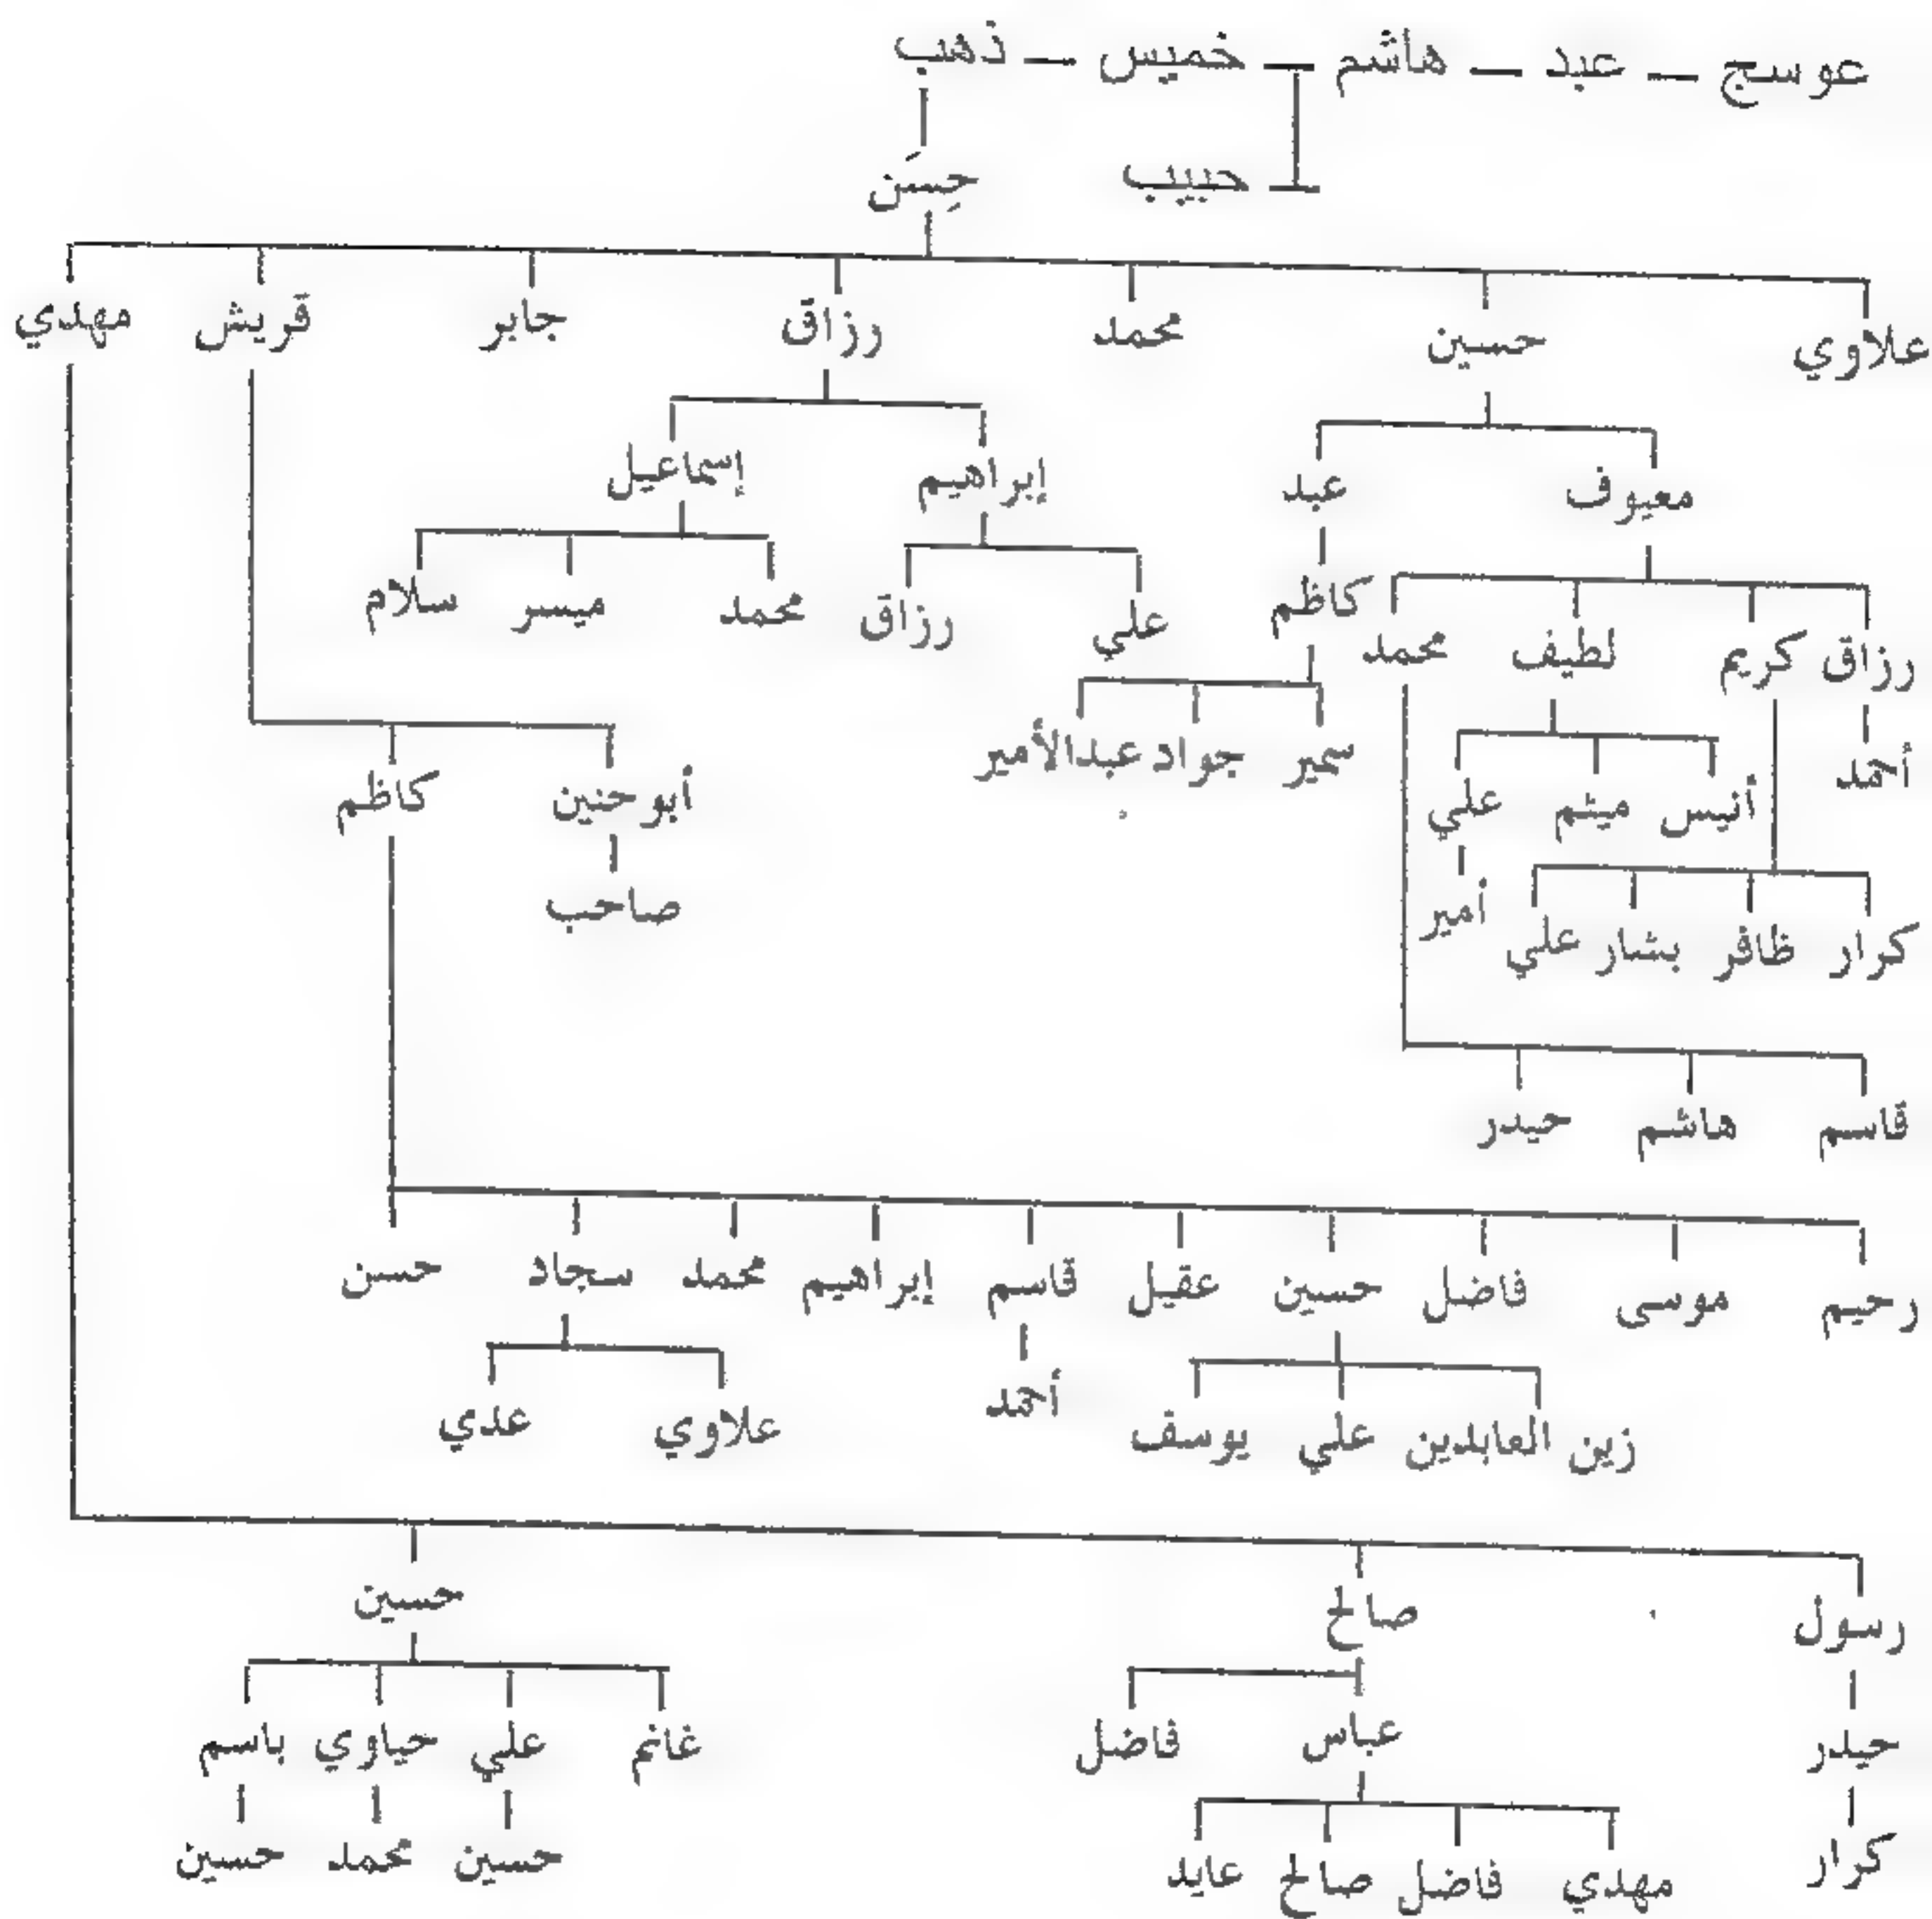 عوسج – عبد – هاشم – خميس – ذهب
حبيب
حِسَن
علاوي حسين محمد رزاق جابر قريش مهدي
معيوف عبد إبراهيم إسماعيل
كاظم علي رزاق محمد ميسر سلام
رزاق كريم لطيف محمد
سمير جواد عبدالأمير
أحمد أنيس ميثم علي أبوحنين كاظم
أمير صاحب
كرار ظافر بشار علي
قاسم هاشم حيدر
رحيم موسى فاضل حسين عقيل قاسم إبراهيم محمد سجاد حسن
زين العابدين علي يوسف أحمد علاوي عدي
رسول صالح حسين
حيدر عباس فاضل غانم علي حياوي باسم
كرار مهدي فاضل صالح عايد حسين محمد حسين